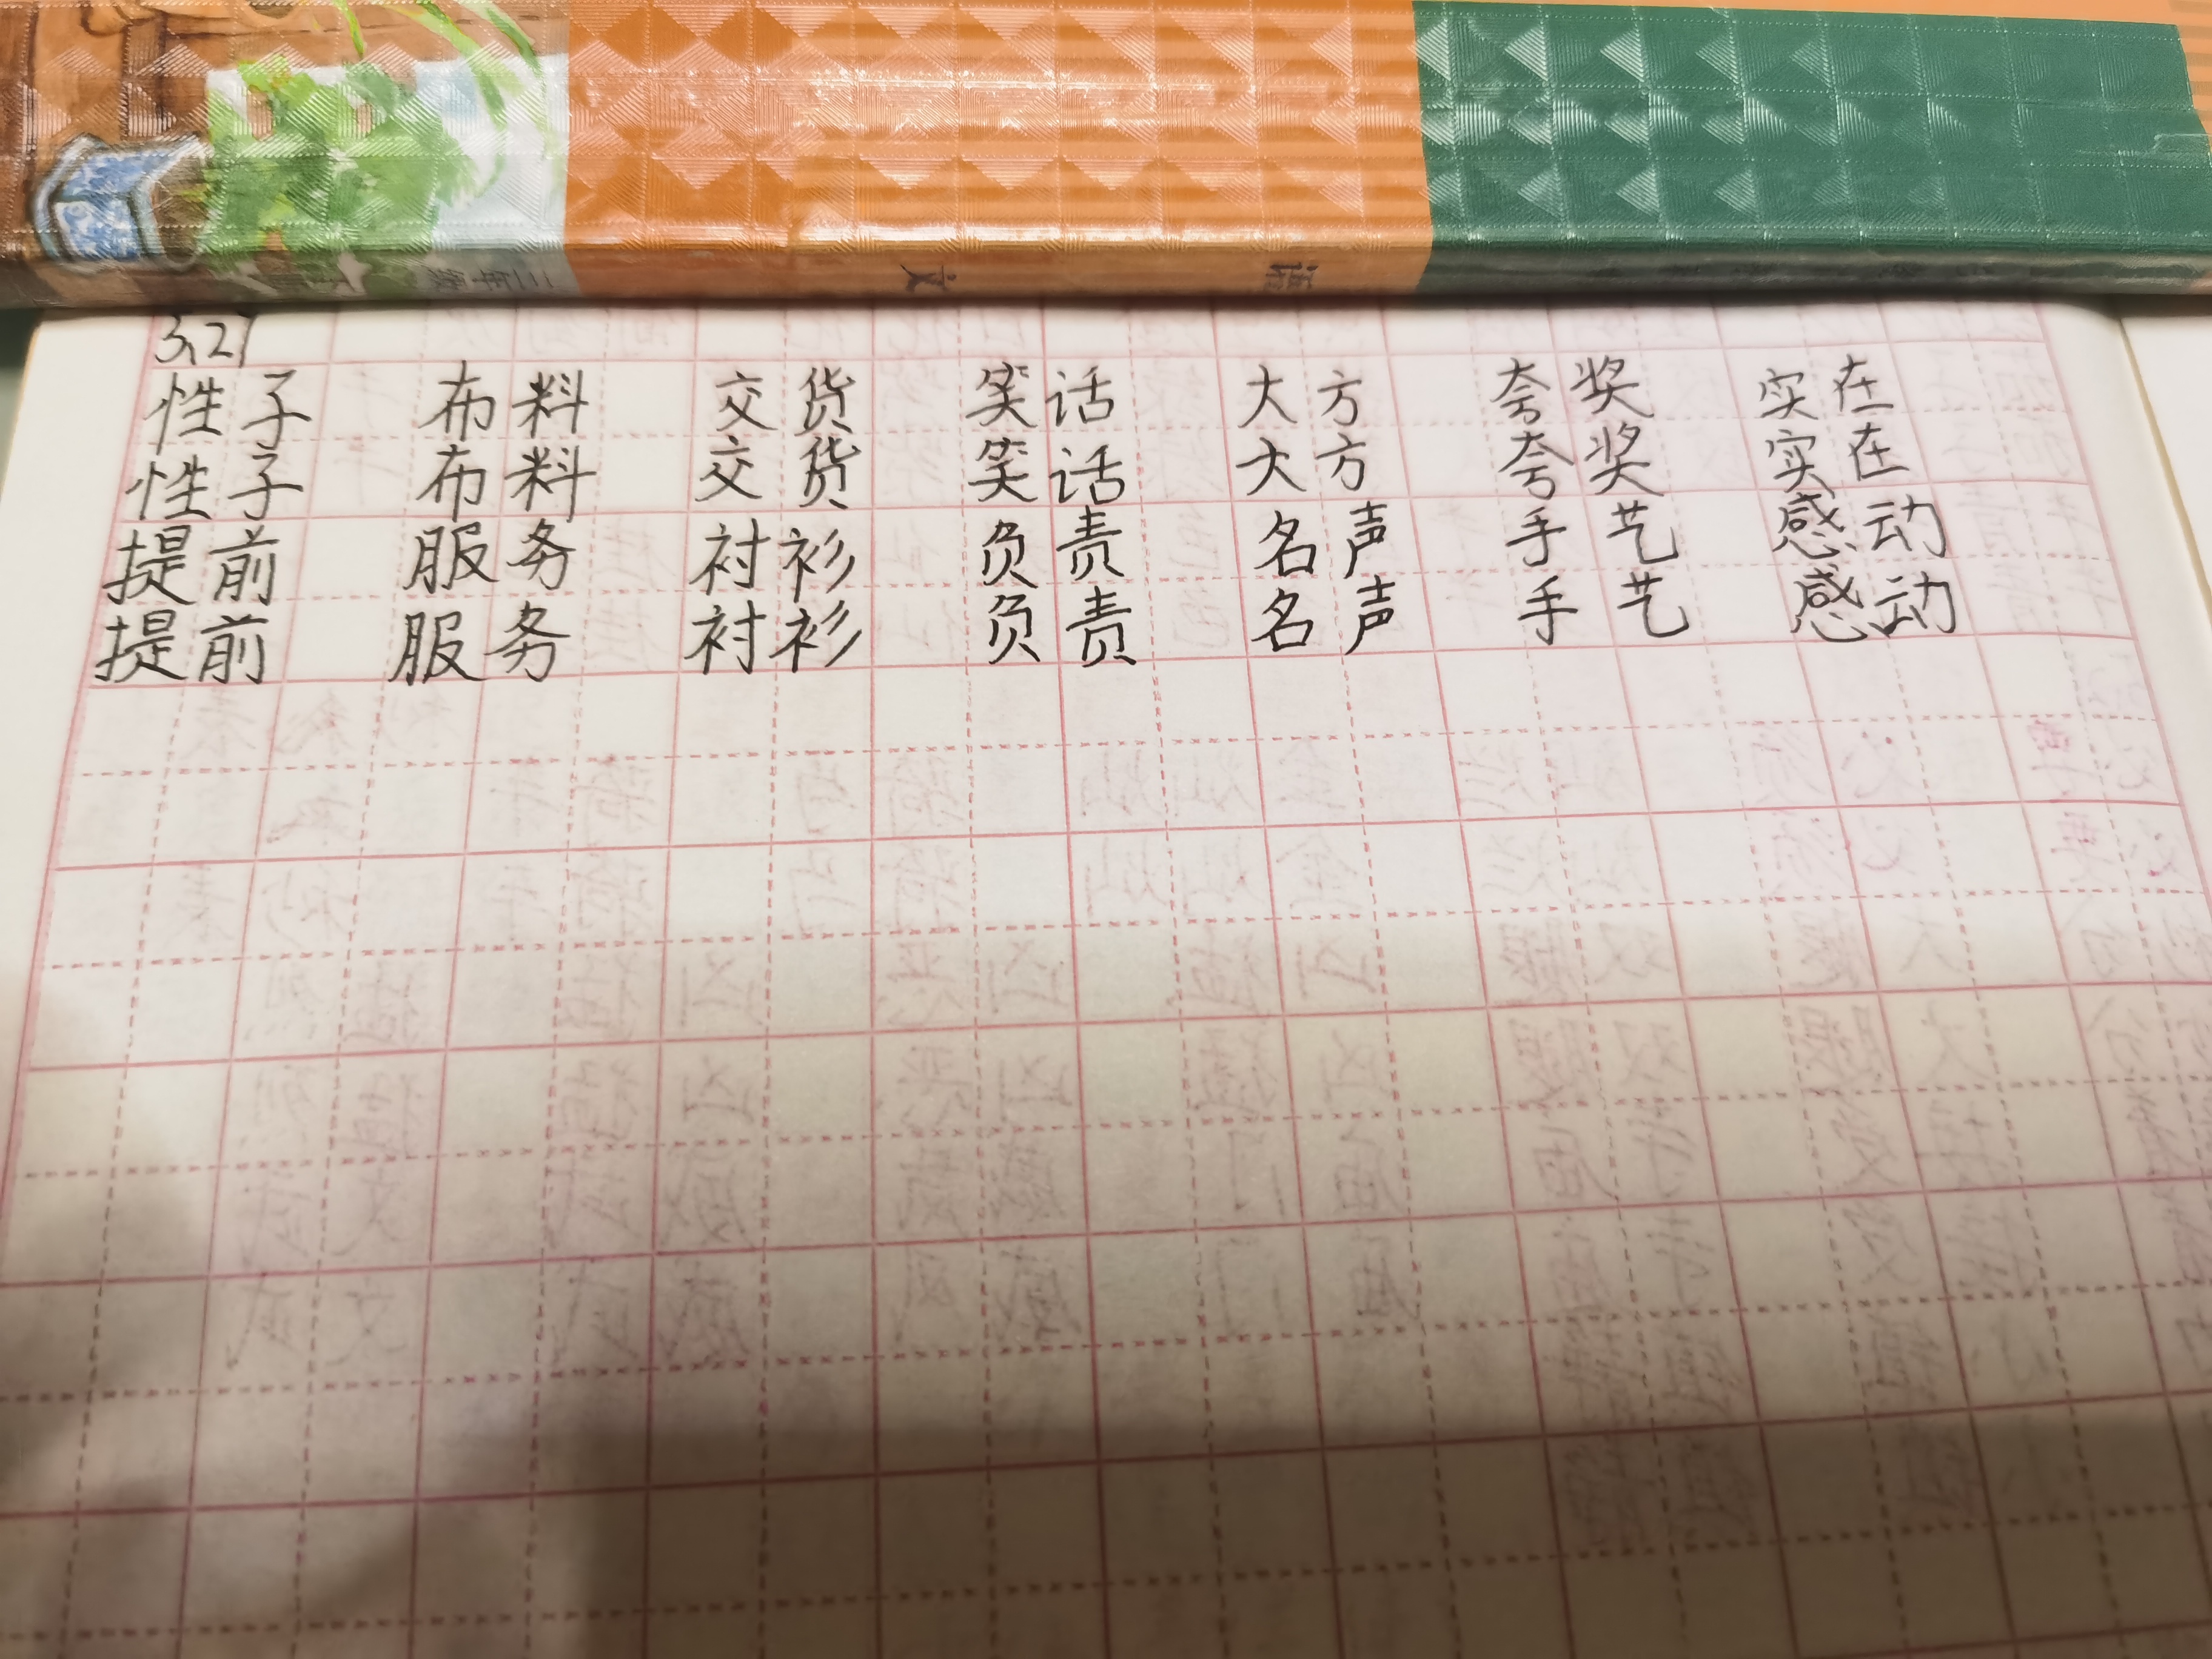 三年级 文 语
3.21
性子 布料 交货 笑话 大方 夸奖 实在
性子 布料 交货 笑话 大方 夸奖 实在
提前 服务 衬衫 负责 名声 手艺 感动
提前 服务 衬衫 负责 名声 手艺 感动